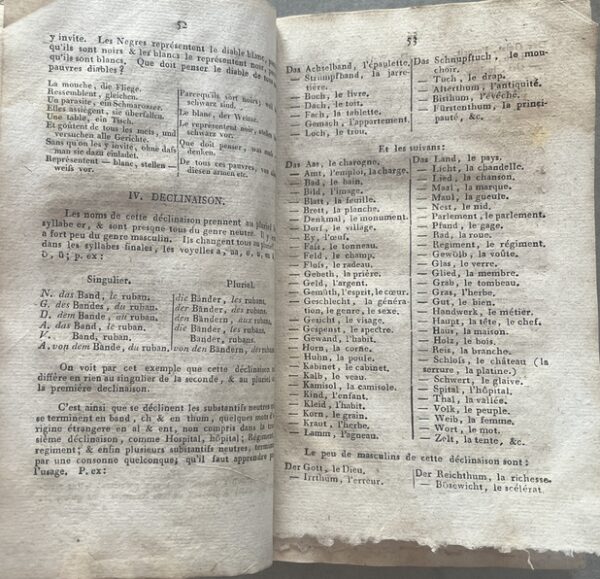 52
y invite. Les Negres représentent le diable blanc,
qu'ils sont noirs & les blancs le représentent noir,
qu'ils sont blancs. Que doit penser le diable de
pauvres diables?
La mouche, die Fliege.
Ressemblent, gleichen.
Un parasite, ein Schmarotzer.
Elles assiègent, sie überfallen.
Une table, ein Tisch.
Et goûtent de tous les mets, und
versuchen alle Gerichte.
Sans qu'on les y invite, ohne daß
man sie dazu einladet.
Représentent — blanc, stellen —
weiß vor.
Parcequ'ils sont noirs; weil
schwarz sind.
Le blanc, der Weiße.
Le représentent noir, stellen
schwarz vor.
Que doit penser, was
denken.
De tous ces pauvres, von
diesen armen etc.
IV. DECLINAISON.
Les noms de cette déclinaison prennent au pluriel
syllabe er, & sont presque tous du genre neutre. Il y en
a fort peu du genre masculin. Ils changent tous au pluriel
dans les syllabes finales, les voyelles a, ua, o, u, en
ö, ü; p. ex:
Singulier.
N. das Band, le ruban.
G. des Bandes, du ruban.
D. dem Bande, au ruban.
A. das Band, le ruban.
V. Band, ruban.
A. von dem Bande, du ruban.
Pluriel.
die Bänder, les rubans.
der Bänder, des rubans.
den Bändern, aux rubans.
die Bänder, les rubans.
Bänder, rubans.
von den Bändern, des rubans.
On voit par cet exemple que cette déclinaison
différe en rien au singulier de la seconde, & au pluriel
la première declinaison.
C'est ainsi que se déclinent les substantifs neutres
se terminent en band, ch & en thum, quelques mots
rigine étrangere en al & ent, non compris dans la
sième déclinaison, comme Hospital, hôpital; Regiment,
regiment; & enfin plusieurs substantifs neutres, terminés
par une consonne quelconque; qu'il faut apprendre par
l'usage. P. ex:
53
Das Achselband, l'épaulette.
— Strumpfband, la jarre-
tière.
— Buch, le livre.
— Dach, le toit.
— Fach, la tablette.
— Gemach, l'appartement.
— Loch, le trou.
Das Schnupftuch, le mou-
choir.
— Tuch, le drap.
— Alterthum, l'antiquité.
— Bisthum, l'évêché.
— Fürstenthum, la princi-
pauté, &c.
Et les suivans:
Das Aas, le charogne.
— Amt, l'emploi, la charge.
— Bad, le bain.
— Bild, l'image.
— Blatt, la feuille.
— Brett, la planche.
— Denkmal, le monument.
— Dorf, le village.
— Ey, l'œuf.
— Faß, le tonneau.
— Feld, le champ.
— Floß, le radeau.
— Gebeth, la prière.
— Geld, l'argent.
— Gemüth, l'esprit, le cœur.
— Geschlecht, la généra-
tion, le genre, le sexe.
— Gesicht, le visage.
— Gespenst, le spectre.
— Gewand, l'habit.
— Horn, la corne.
— Huhn, la poule.
— Kabinet, le cabinet.
— Kalb, le veau.
— Kamisol, la camisole.
— Kind, l'enfant.
— Kleid, l'habit.
— Korn, le grain.
— Kraut, l'herbe.
— Lamm, l'agneau.
Das Land, le pays.
— Licht, la chandelle.
— Lied, la chanson.
— Maal, la marque.
— Maul, la gueule.
— Nest, le nid.
— Parlement, le parlement.
— Pfand, le gage.
— Rad, la roue.
— Regiment, le régiment.
— Gewölb, la voûte.
— Glas, le verre.
— Glied, la membre.
— Grab, le tombeau.
— Gras, l'herbe.
— Gut, le bien.
— Handwerk, le métier.
— Haupt, la tête, le chef.
— Haus, la maison.
— Holz, le bois.
— Reis, la branche.
— Schloß, le château (la
serrure, la platine.)
— Schwert, le glaive.
— Spital, l'hôpital.
— Thal, la vallée.
— Volk, le peuple.
— Weib, la femme.
— Wort, le mot.
— Zelt, la tente, &c.
Le peu de masculins de cette déclinaison sont:
Der Gott, le Dieu.
— Irrthum, l'erreur.
Der Reichthum, la richesse.
— Bösewicht, le scélérat.